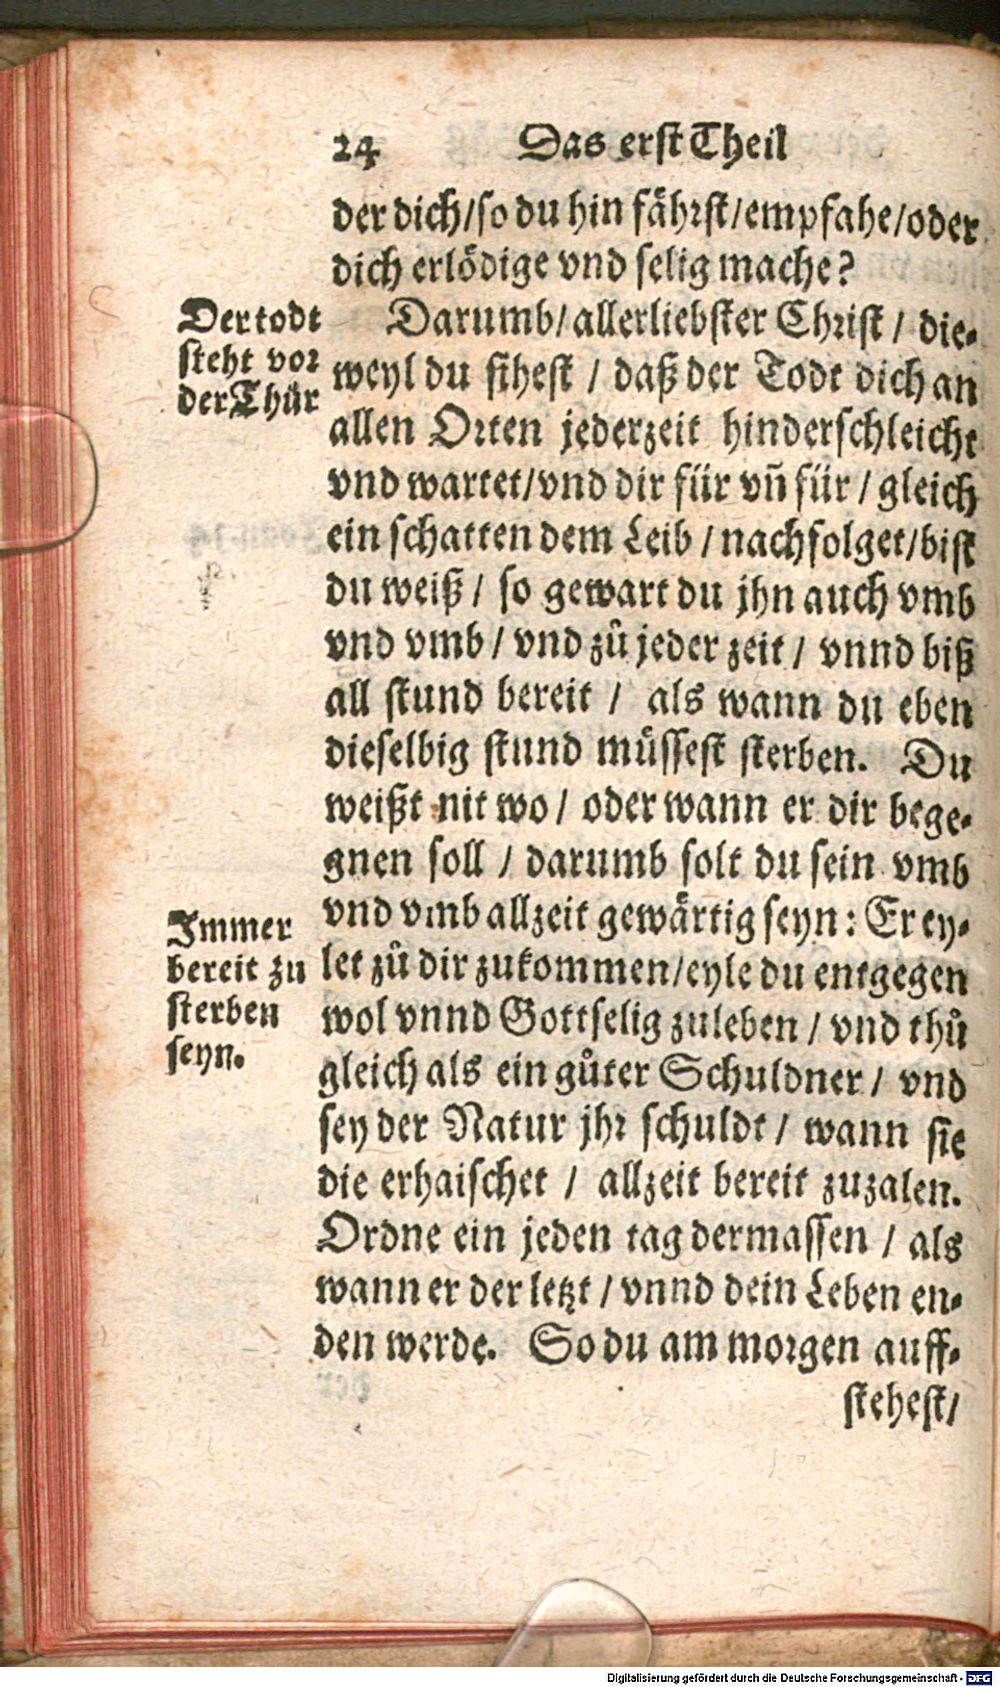 24 Das erst Theil
der dich/so du hin fährst/empfahe/oder
dich erlödige vnd selig mache?
Der todt
steht vor
der Thür
Darumb/ allerliebster Christ / die-
weyl du sihest / daß der Todt dich an
allen Orten jederzeit hinderschleicht
vnd wartet/vnd dir für vñ für / gleich
ein schatten dem Leib / nachfolget/bist
du weiß / so gewart du jhn auch vmb
vnd vmb / vnd zů jeder zeit / vnnd biß
all stund bereit / als wann du eben
dieselbig stund müssest sterben. Du
weißt nit wo / oder wann er dir bege-
gnen soll / darumb solt du sein vmb
vnd vmb allzeit gewärtig seyn : Er ey-
let zů dir zukommen/eyle du entgegen
wol vnnd Gottselig zuleben / vnd thů
gleich als ein gůter Schuldner / vnd
sey der Natur jhr schuldt / wann sie
die erhaischet / allzeit bereit zuzalen.
Ordne ein jeden tag dermassen / als
wann er der letzt / vnnd dein Leben en-
den werde. So du am morgen auff-
stehest/
Immer
bereit zu
sterben
seyn.
Digitalisierung gefördert durch die Deutsche Forschungsgemeinschaft - DFG